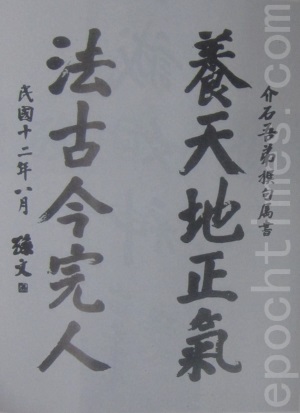 介石吾弟撰句屬書
養天地正氣
法古今完人
民國十二年八月
孫文
epochtimes